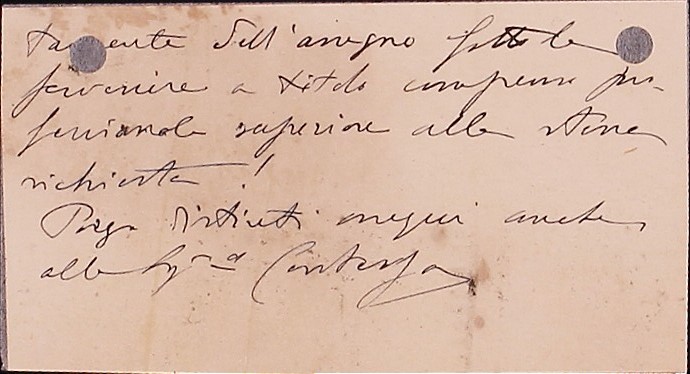 dell'assegno fattole
pervenire a titolo compenso pro-
fessionale superiore alla stessa
richiesta!
Porga distinti ossequi anche
alla Sig.ra Contessa